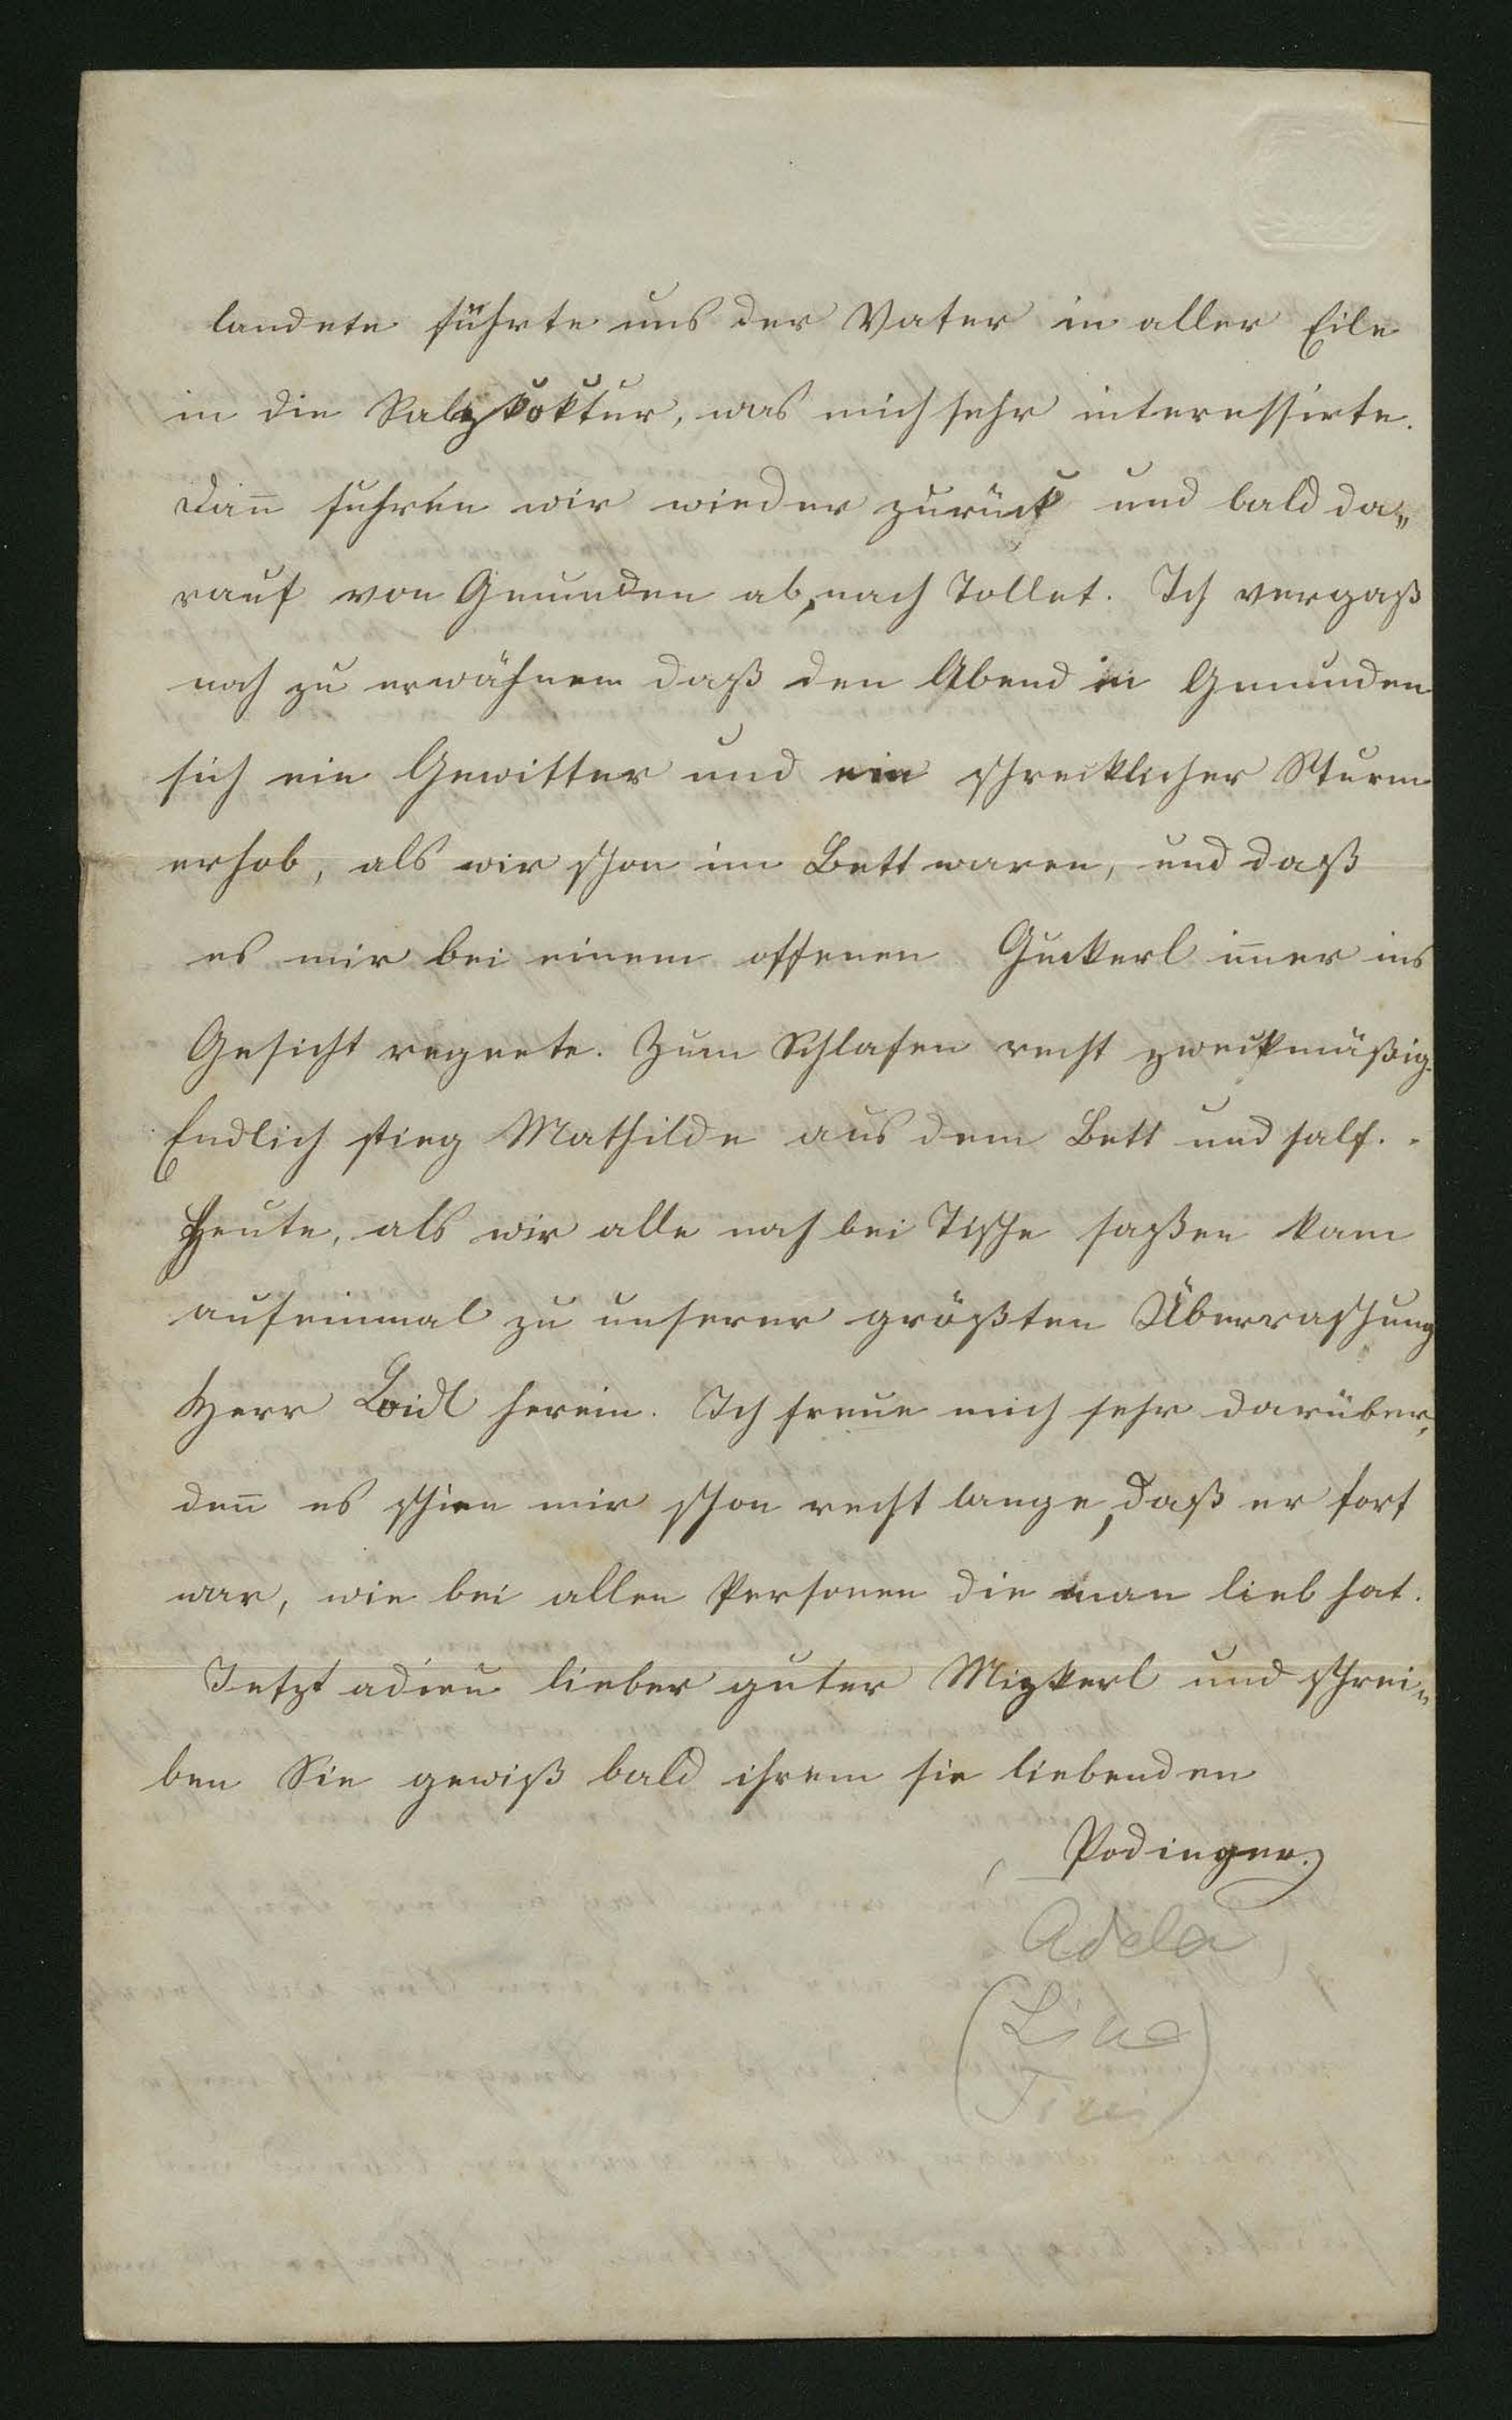 landete führte uns der Vater in aller Eile
in die Salzkoktur, was mich sehr interessirte.
Dan̅ fuhren wir wieder zurück und bald da„
rauf von Gmunden ab, nach Tollet. Ich vergaß
noch zu erwähnen daß den Abend in Gmunden
sich ein Gewitter und ein schrecklicher Sturm
erhob, als wir schon im Bett waren, und daß
es mir bei einem offenen Guckerl im̅er ins
Gesicht regnete. Zum Schlafen recht zweckmäßig.
Endlich stieg Mathilde aus dem Bett und half. -
Heute, als wir alle noch bei Tische saßen kam
aufeinmal zu unserer größten Überraschung
Herr Loidl herein. Ich freue mich sehr darüber,
den̅ es schien mir schon recht lange, daß er fort
war, wie bei allen Personen die man lieb hat.
Jetzt adieu lieber guter Mizkerl und schrei„
ben Sie gewiß bald ihrem sie liebenden
Podinger.
Adela
(Line
Tini)